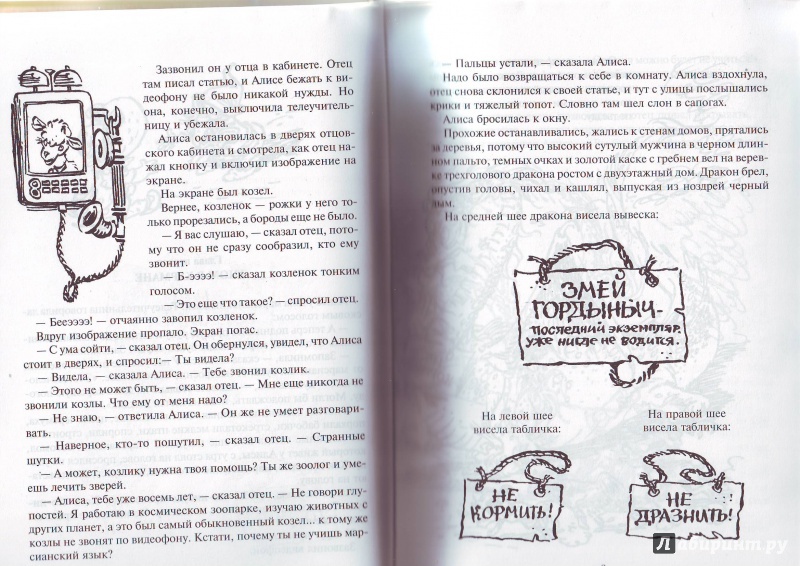 Зазвонил он у отца в кабинете. Отец
там писал статью, и Алисе бежать к ви-
деофону не было никакой нужды. Но
она, конечно, выключила телеучитель-
ницу и убежала.
Алиса остановилась в дверях отцов-
ского кабинета и смотрела, как отец на-
жал кнопку и включил изображение на
экране.
На экране был козел.
Вернее, козленок — рожки у него то-
лько прорезались, а бороды еще не было.
— Я вас слушаю, — сказал отец, пото-
му что он не сразу сообразил, кто ему
звонит.
— Б-ээээ! — сказал козленок тонким
голосом.
— Это еще что такое? — спросил отец.
— Бееээээ! — отчаянно завопил козленок.
Вдруг изображение пропало. Экран погас.
— С ума сойти, — сказал отец. Он обернулся, увидел, что Алиса
стоит в дверях, и спросил:— Ты видела?
— Видела, — сказала Алиса. — Тебе звонил козлик.
— Этого не может быть, — сказал отец. — Мне еще никогда не
звонили козлы. Что ему от меня надо?
— Не знаю, — ответила Алиса. — Он же не умеет разговари-
вать.
— Наверное, кто-то пошутил, — сказал отец. — Странные
шутки.
— А может, козлику нужна твоя помощь? Ты же зоолог и уме-
ешь лечить зверей.
— Алиса, тебе уже восемь лет, — сказал отец. — Не говори глу-
постей. Я работаю в космическом зоопарке, изучаю животных с
других планет, а это был самый обыкновенный козел... к тому же
козлы не звонят по видеофону. Кстати, почему ты не учишь мар-
сианский язык?
— Пальцы устали, — сказала Алиса.
Надо было возвращаться к себе в комнату. Алиса вздохнула,
отец снова склонился к своей статье, и тут с улицы послышались
крики и тяжелый топот. Словно там шел слон в сапогах.
Алиса бросилась к окну.
Прохожие останавливались, жались к стенам домов, прятались
за деревья, потому что высокий сутулый мужчина в черном длин-
ном пальто, темных очках и золотой каске с гребнем вел на верев-
ке трехголового дракона ростом с двухэтажный дом. Дракон брел,
опустив головы, чихал и кашлял, выпуская из ноздрей черный
дым.
На средней шее дракона висела вывеска:
ЗМЕЙ
ГОРДЫНЫЧ-
последний экземпляр.
уже нигде не водится.
На левой шее
висела табличка:
На правой шее
висела табличка:
НЕ
КОРМИТЬ!
НЕ
ДРАЗНИТЬ!
Лабиринт.ру